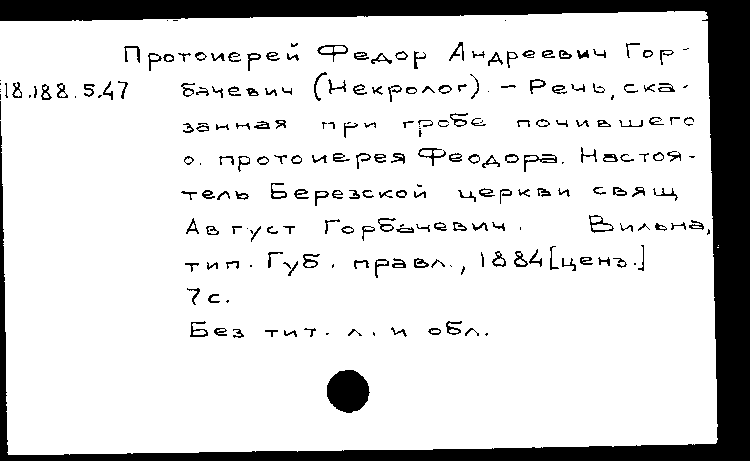 Протоиерей Федор Андреевич Гор-
18.188.5.47 бачевич (Некролог). – Речь, ска-
занная при гробе почившего
о. протоиерея Феодора. Настоя-
тель Березской церкви свящ
Август Горбачевич. Вильна,
тип. Губ. правл., 1884 [ценз.]
7 с.
Без тит. л. и обл.